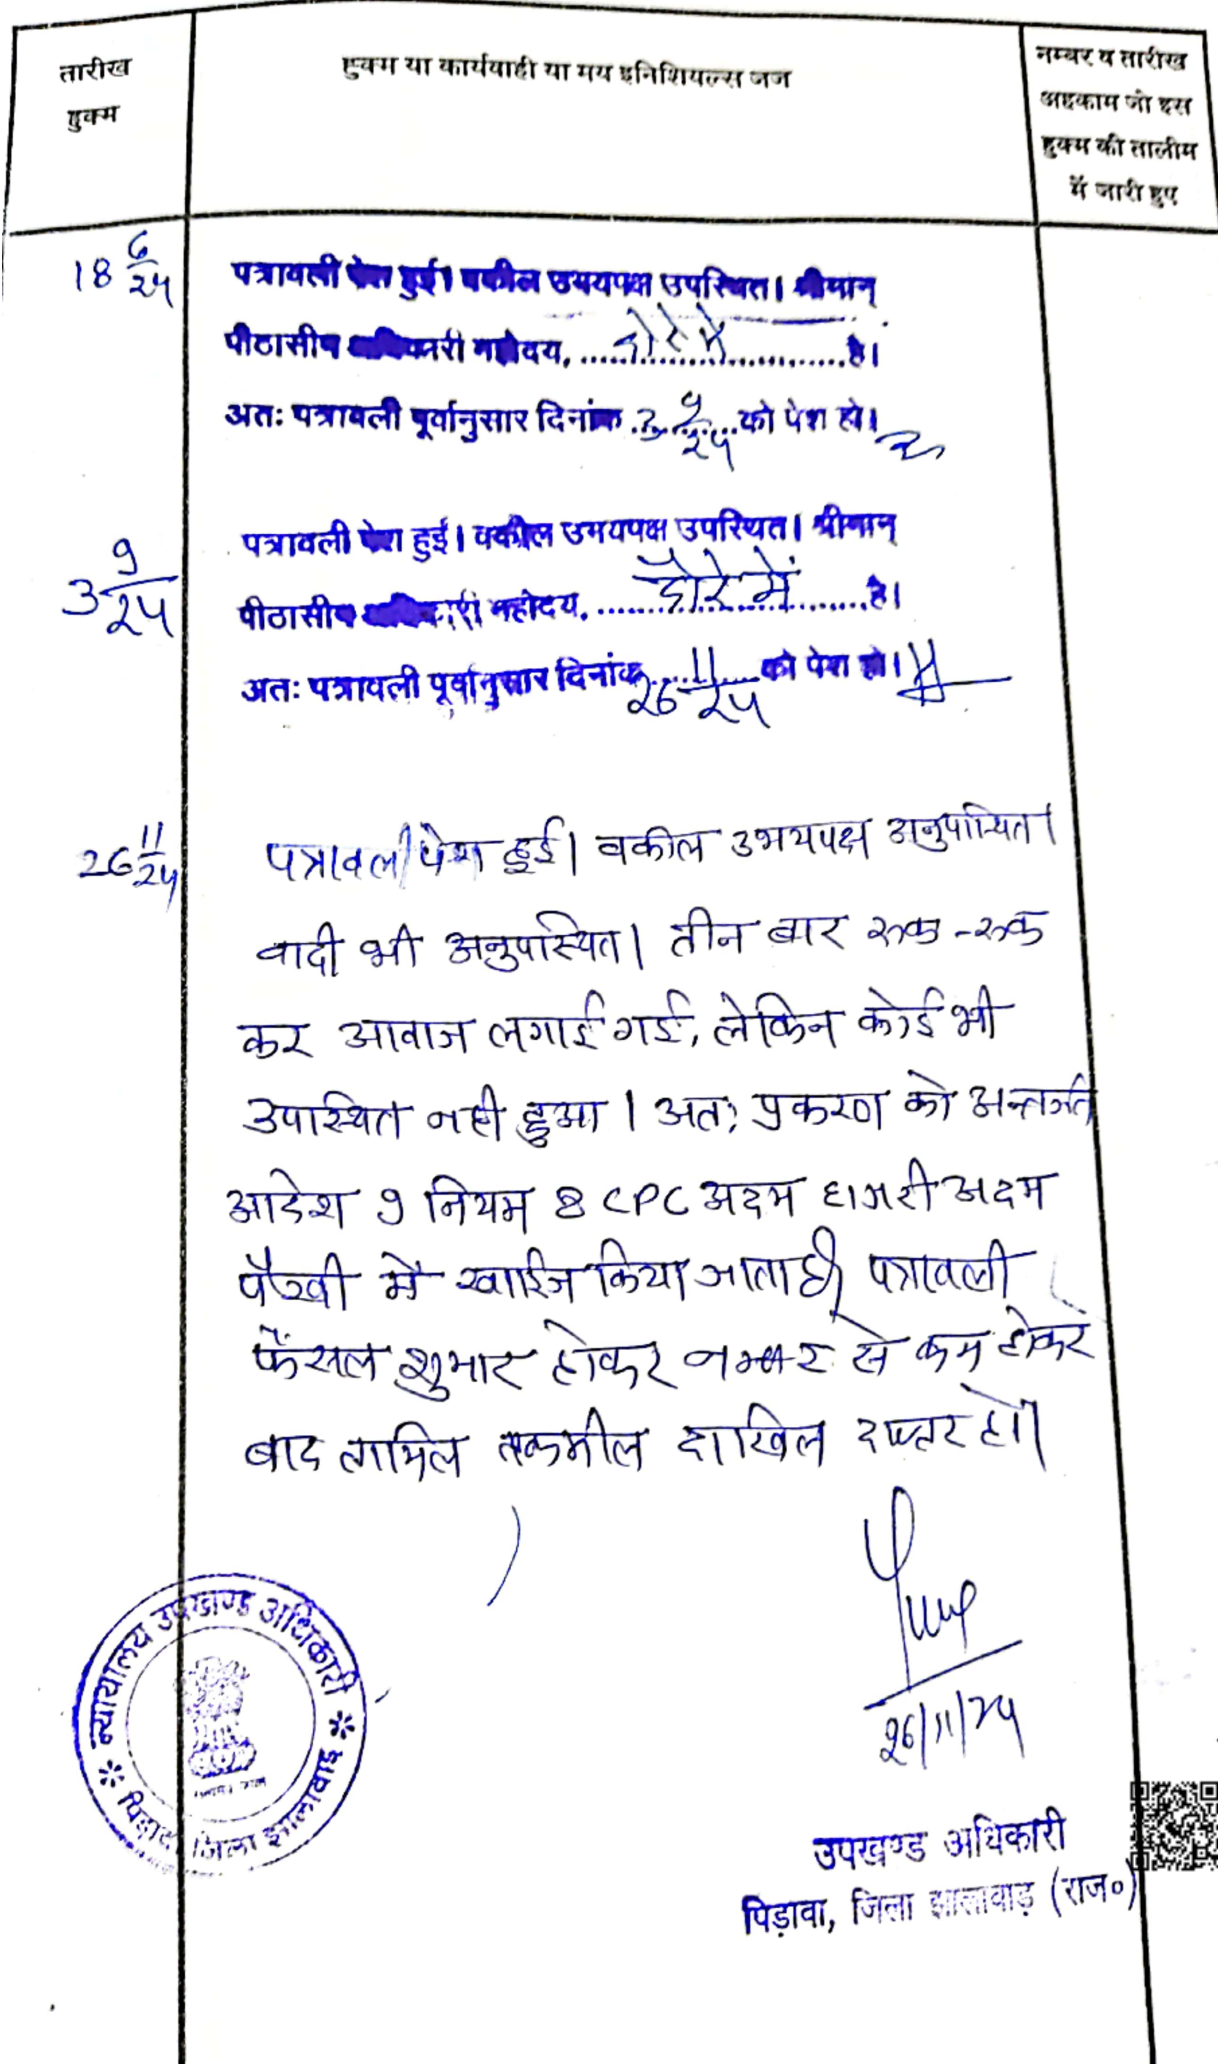 तारीख
हुक्म
हुक्म या कार्यवाही या मय इनिशियल्स जज
नम्बर व तारीख
अहकाम जो इस
हुक्म की तालीम
में जारी हुए
18 6/24
पत्रावली पेश हुई। वकील उभयपक्ष उपस्थित। श्रीमान्
पीठासीन अधिकारी महोदय, ....दौरे में....है।
अतः पत्रावली पूर्वानुसार दिनांक 3 9/24 को पेश हो।
3 9/24
पत्रावली पेश हुई। वकील उभयपक्ष उपस्थित। श्रीमान्
पीठासीन अधिकारी महोदय, ....दौरे में....है।
अतः पत्रावली पूर्वानुसार दिनांक 26 11/24 को पेश हो।
26 11/24
पत्रावली पेश हुई। वकील उभयपक्ष अनुपस्थित।
वादी भी अनुपस्थित। तीन बार रूक-रूक
कर आवाज लगाई गई, लेकिन कोई भी
उपस्थित नही हुआ। अतः प्रकरण को अन्तर्गत
आदेश 9 नियम 8 CPC अदम हाजरी अदम
पैरवी में खारिज किया जाता है। पत्रावली
फैंसल शुमार होकर नम्बर से कम होकर
बाद तामिल तकमील दाखिल दफ्तर हो।
26/11/24
न्यायालय उपखण्ड अधिकारी
पिड़ावा जिला झालावाड़
उपखण्ड अधिकारी
पिड़ावा, जिला झालावाड़ (राज०)